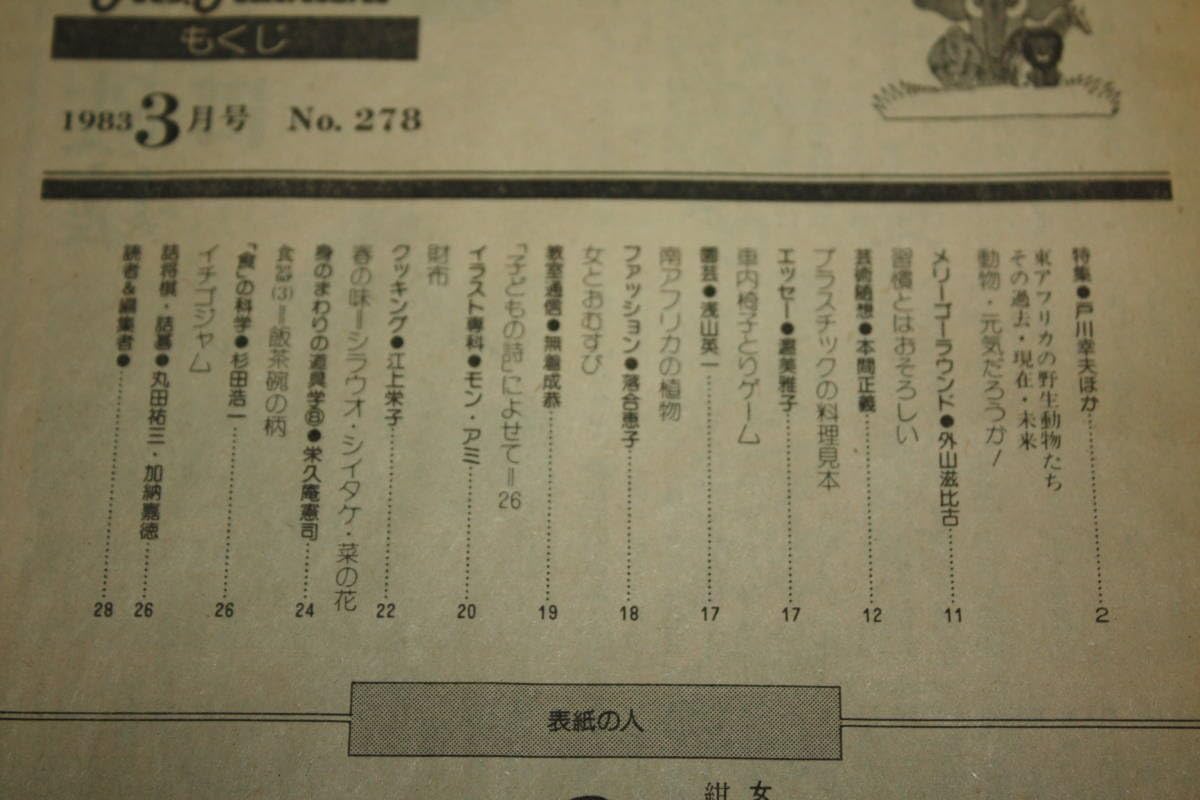 もくじ
1983 3月号 No. 278
特集●戸川幸夫ほか 2
東アフリカの野生動物たち
その過去・現在・未来
動物・元気だろうか！
メリーゴーラウンド●外山滋比古 11
習慣とはおそろしい
芸術随想●本間正義 12
プラスチックの料理見本
エッセー● 美雅子 17
車内椅子とりゲーム
園芸●浅山英一 17
南アフリカの植物
ファッション●落合恵子 18
女とおむすび
教室通信●無着成恭 19
「子どもの詩」によせて=26
イラスト専科●モン・アミ 20
財布
クッキング●江上栄子 22
春の味=シラウオ・シイタケ・菜の花
身のまわりの道具学⑧●栄久庵憲司 24
食器(3)=飯茶碗の柄
「食」の科学●杉田浩一 26
イチゴジャム
詰将棋・詰碁●丸田祐三・加納嘉徳 26
読者&編集者● 28
表紙の人
女
紺